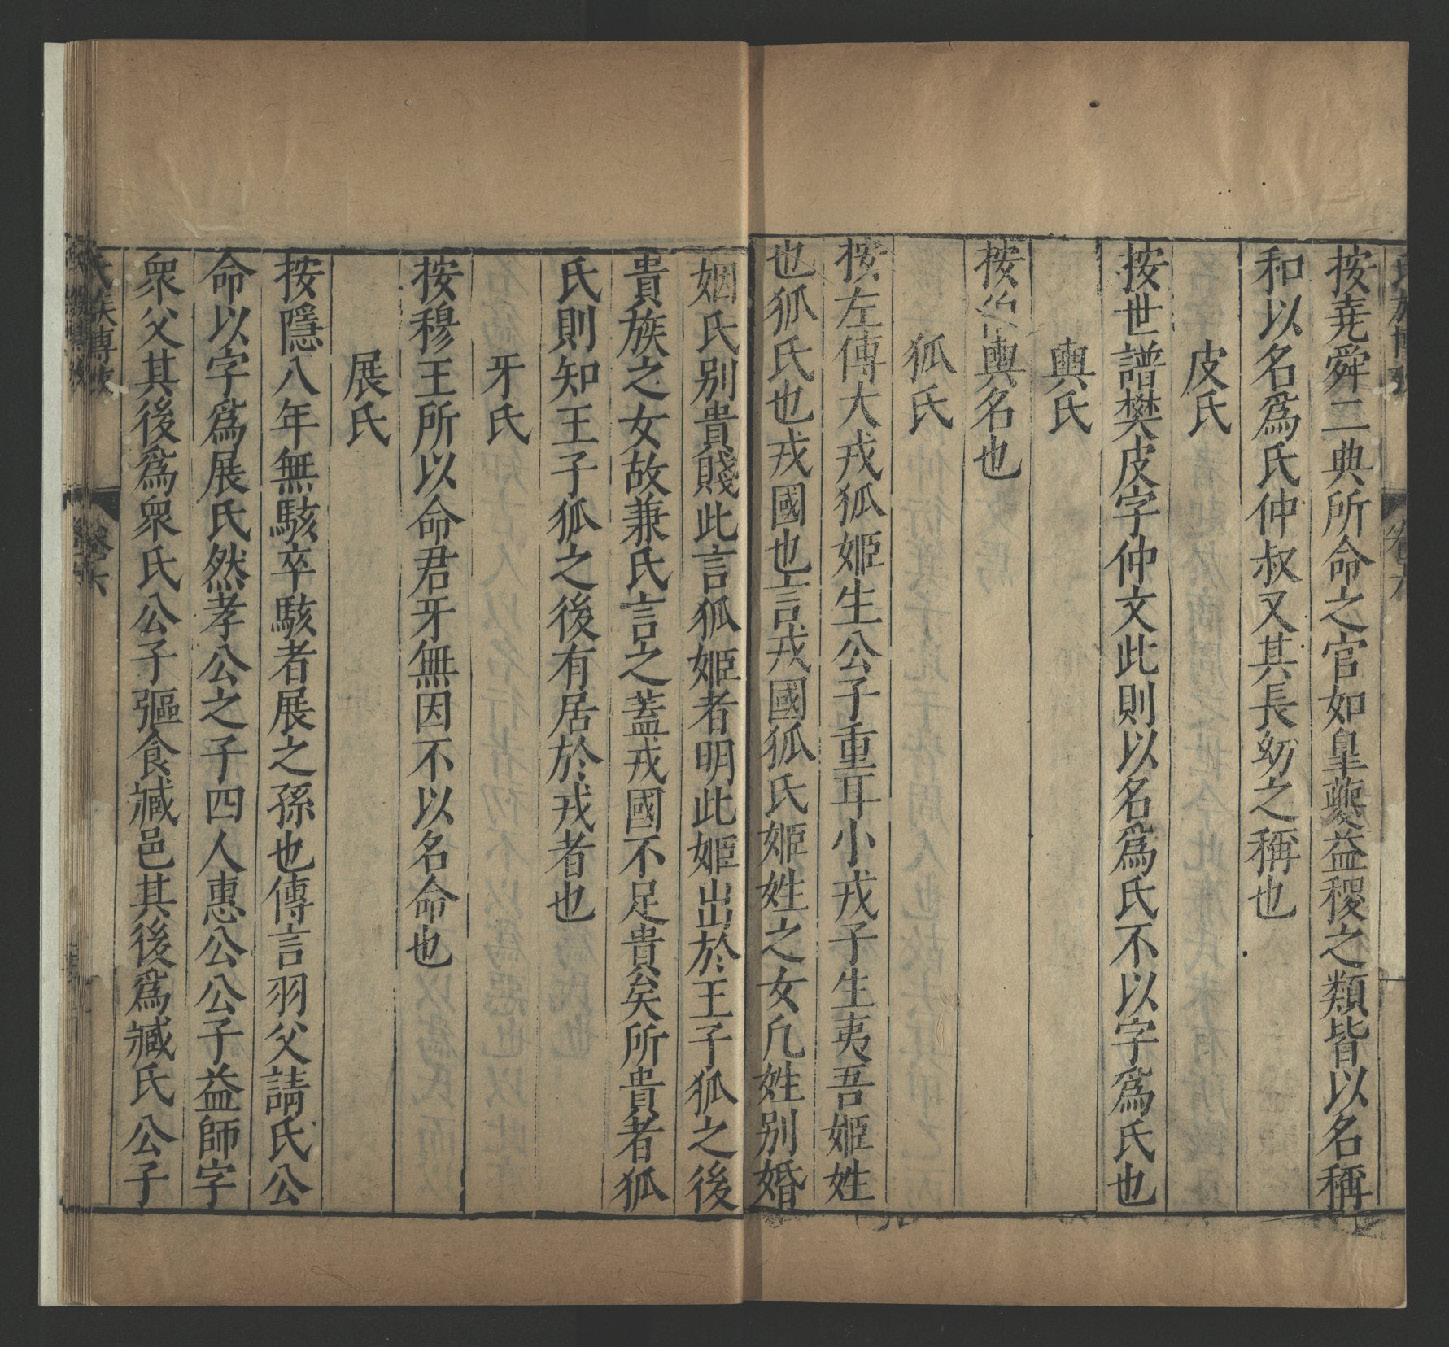 按堯舜二典所命之官如皇夔益稷之類皆以名稱
和以名爲氏仲叔又其長幼之稱也
皮氏
按世譜樊皮字仲文此則以名爲氏不以字爲氏也
輿氏
按伯輿名也
狐氏
按左傳大戎狐姬生公子重耳小戎子生夷吾姬姓
也狐氏也戎國也言戎國狐氏姬姓之女凡姓别婚
姻氏别貴賤此言狐姬者明此姬出於王子狐之後
貴族之女故兼氏言之蓋戎國不足貴矣所貴者狐
氏則知王子狐之後有居於戎者也
牙氏
按穆王所以命君牙無因不以名命也
展氏
按隱八年無駭卒駭者展之孫也傳言羽父請氏公
命以字爲展氏然孝公之子四人惠公公子益師字
衆父其後爲衆氏公子彄食臧邑其後爲臧氏公子
氏族博攷
卷六